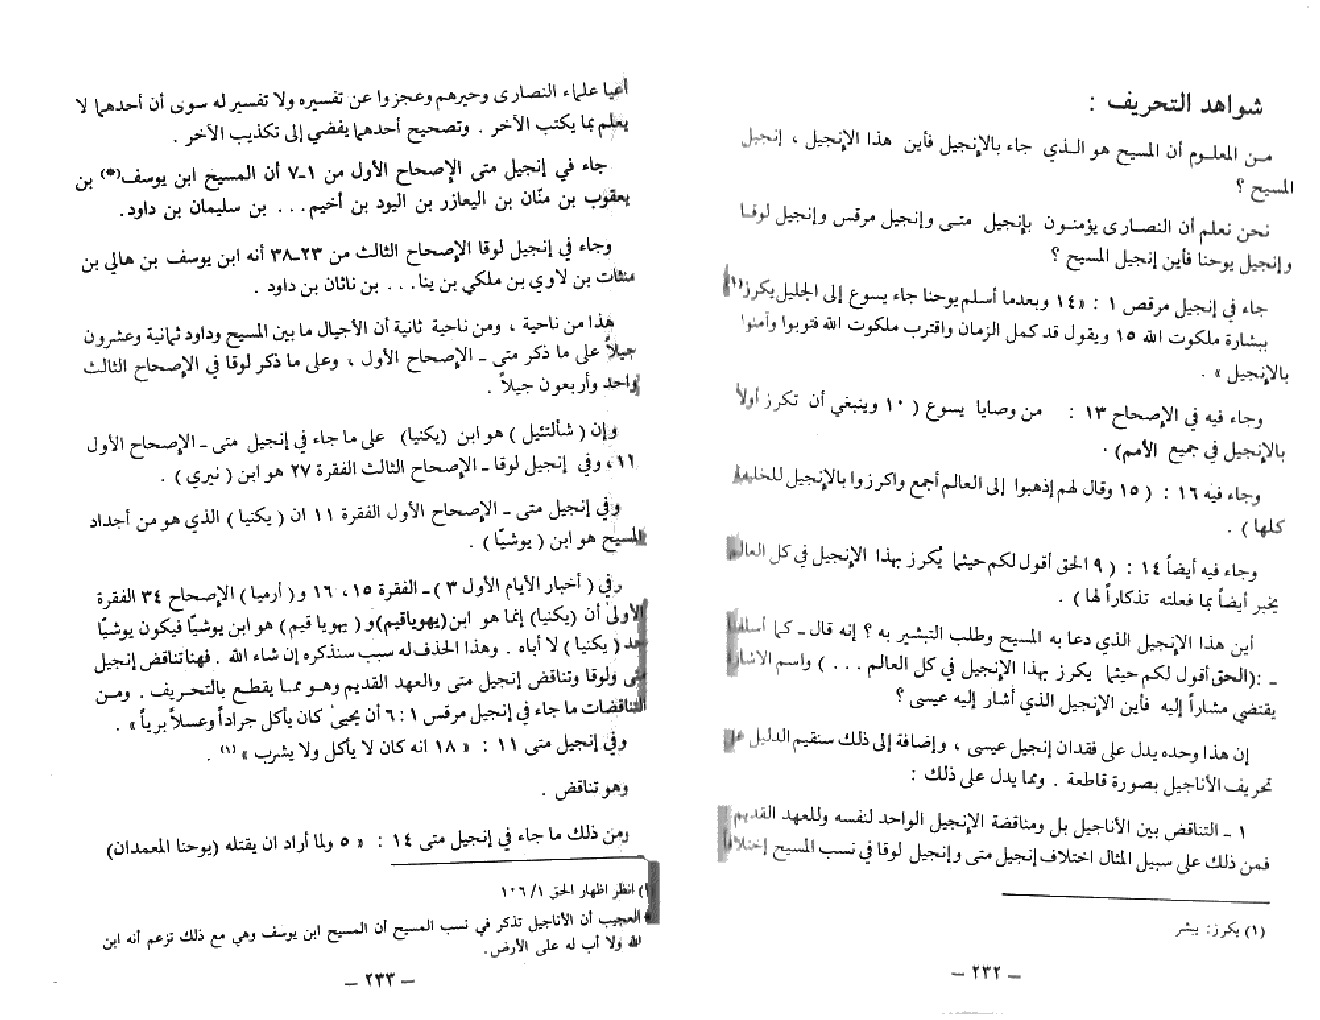 شواهد التحريف :
من المعلوم أن المسيح هو الذي جاء بالإنجيل فأين هذا الإنجيل ، إنجيل
المسيح ؟
نحن نعلم أن النصارى يؤمنون بإنجيل متى وإنجيل مرقس وإنجيل لوقا
وإنجيل يوحنا فأين إنجيل المسيح ؟
جاء في إنجيل مرقص ١ : «١٤ وبعدما أسلم يوحنا جاء يسوع إلى الجليل يكرز(١)
ببشارة ملكوت الله ١٥ ويقول قد كمل الزمان واقترب ملكوت الله فتوبوا وآمنوا
بالإنجيل » .
وجاء فيه في الإصحاح ١٣ : من وصايا يسوع ( ١٠ وينبغي أن تكرز أولاً
بالإنجيل في جميع الأمم) .
وجاء فيه ١٦ : ( ١٥ وقال لهم إذهبوا إلى العالم أجمع واكرزوا بالإنجيل للخليقة
كلها ) .
وجاء فيه أيضاً ١٤ : ( ٩ الحق أقول لكم حيثما يُكرز بهذا الإنجيل في كل العالم
يخبر أيضاً بما فعلته تذكاراً لها ) .
أين هذا الإنجيل الذي دعا به المسيح وطلب التبشير به ؟ إنه قال ـ كما أسلفنا
ـ :(الحق أقول لكم حيثما يكرز بهذا الإنجيل في كل العالم . . . ) واسم الاشارة
يقتضي مشاراً إليه فأين الإنجيل الذي أشار إليه عيسى ؟
إن هذا وحده يدل على فقدان إنجيل عيسى ، وإضافة إلى ذلك سنقيم الدليل على
تحريف الأناجيل بصورة قاطعة . ومما يدل على ذلك :
١ ـ التناقض بين الأناجيل بل ومناقضة الإنجيل الواحد لنفسه وللعهد القديم
فمن ذلك على سبيل المثال اختلاف إنجيل متى وإنجيل لوقا في نسب المسيح إختلافاً
(١) يكرز: يبشر
ـ ٢٣٢ ـ
أعيا علماء النصارى وحيرهم وعجزوا عن تفسيره ولا تفسير له سوى أن أحدهما لا
يعلم بما يكتب الآخر . وتصحيح أحدهما يفضي إلى تكذيب الآخر .
جاء في إنجيل متى الإصحاح الأول من ١-٧ أن المسيح ابن يوسف(*) بن
يعقوب بن متّان بن اليعازر بن اليود بن أخيم . . . بن سليمان بن داود .
وجاء في إنجيل لوقا الإصحاح الثالث من ٢٣ـ٣٨ أنه ابن يوسف بن هالي بن
متثات بن لاوي بن ملكي بن ينا . . . بن ناثان بن داود .
هذا من ناحية ، ومن ناحية ثانية أن الأجيال ما بين المسيح وداود ثمانية وعشرون
جيلاً على ما ذكر متى ـ الإصحاح الأول ، وعلى ما ذكر لوقا في الإصحاح الثالث
واحد وأربعون جيلاً .
وإن ( شألتئيل ) هو ابن (يكنيا) على ما جاء في إنجيل متى ـ الإصحاح الأول
١١، وفي إنجيل لوقا ـ الإصحاح الثالث الفقرة ٢٧ هو ابن ( نيري ) .
وفي إنجيل متى ـ الإصحاح الأول الفقرة ١١ ان ( يكنيا ) الذي هو من أجداد
المسيح هو ابن ( يوشيّا ) .
وفي ( أخبار الأيام الأول ٣ ) ـ الفقرة ١٥ ، ١٦ و ( أرميا ) الإصحاح ٣٤ الفقرة
الأولى أن (يكنيا) إنما هو ابن (يهوياقيم) و ( يهويا قيم ) هو ابن يوشيّا فيكون يوشيّا
جد ( يكنيا ) لا أباه . وهذا الحذف له سبب سنذكره إن شاء الله . فهنا تناقض إنجيل
متى ولوقا وتناقض إنجيل متى والعهد القديم وهو مما يقطع بالتحريف . ومن
التناقضات ما جاء في إنجيل مرقس ١ : ٦ أن يحيى كان يأكل جراداً وعسلاً برياً » .
وفي إنجيل متى ١١ : « ١٨ انه كان لا يأكل ولا يشرب » (١) .
وهو تناقض .
ومن ذلك ما جاء في إنجيل متى ١٤ : « ٥ ولما أراد ان يقتله (يوحنا المعمدان)
(١) انظر اظهار الحق ١/ ١٠٦
* العجيب أن الأناجيل تذكر في نسب المسيح أن المسيح ابن يوسف وهي مع ذلك تزعم أنه ابن
الله ولا أب له على الأرض.
ـ ٢٣٣ ـ